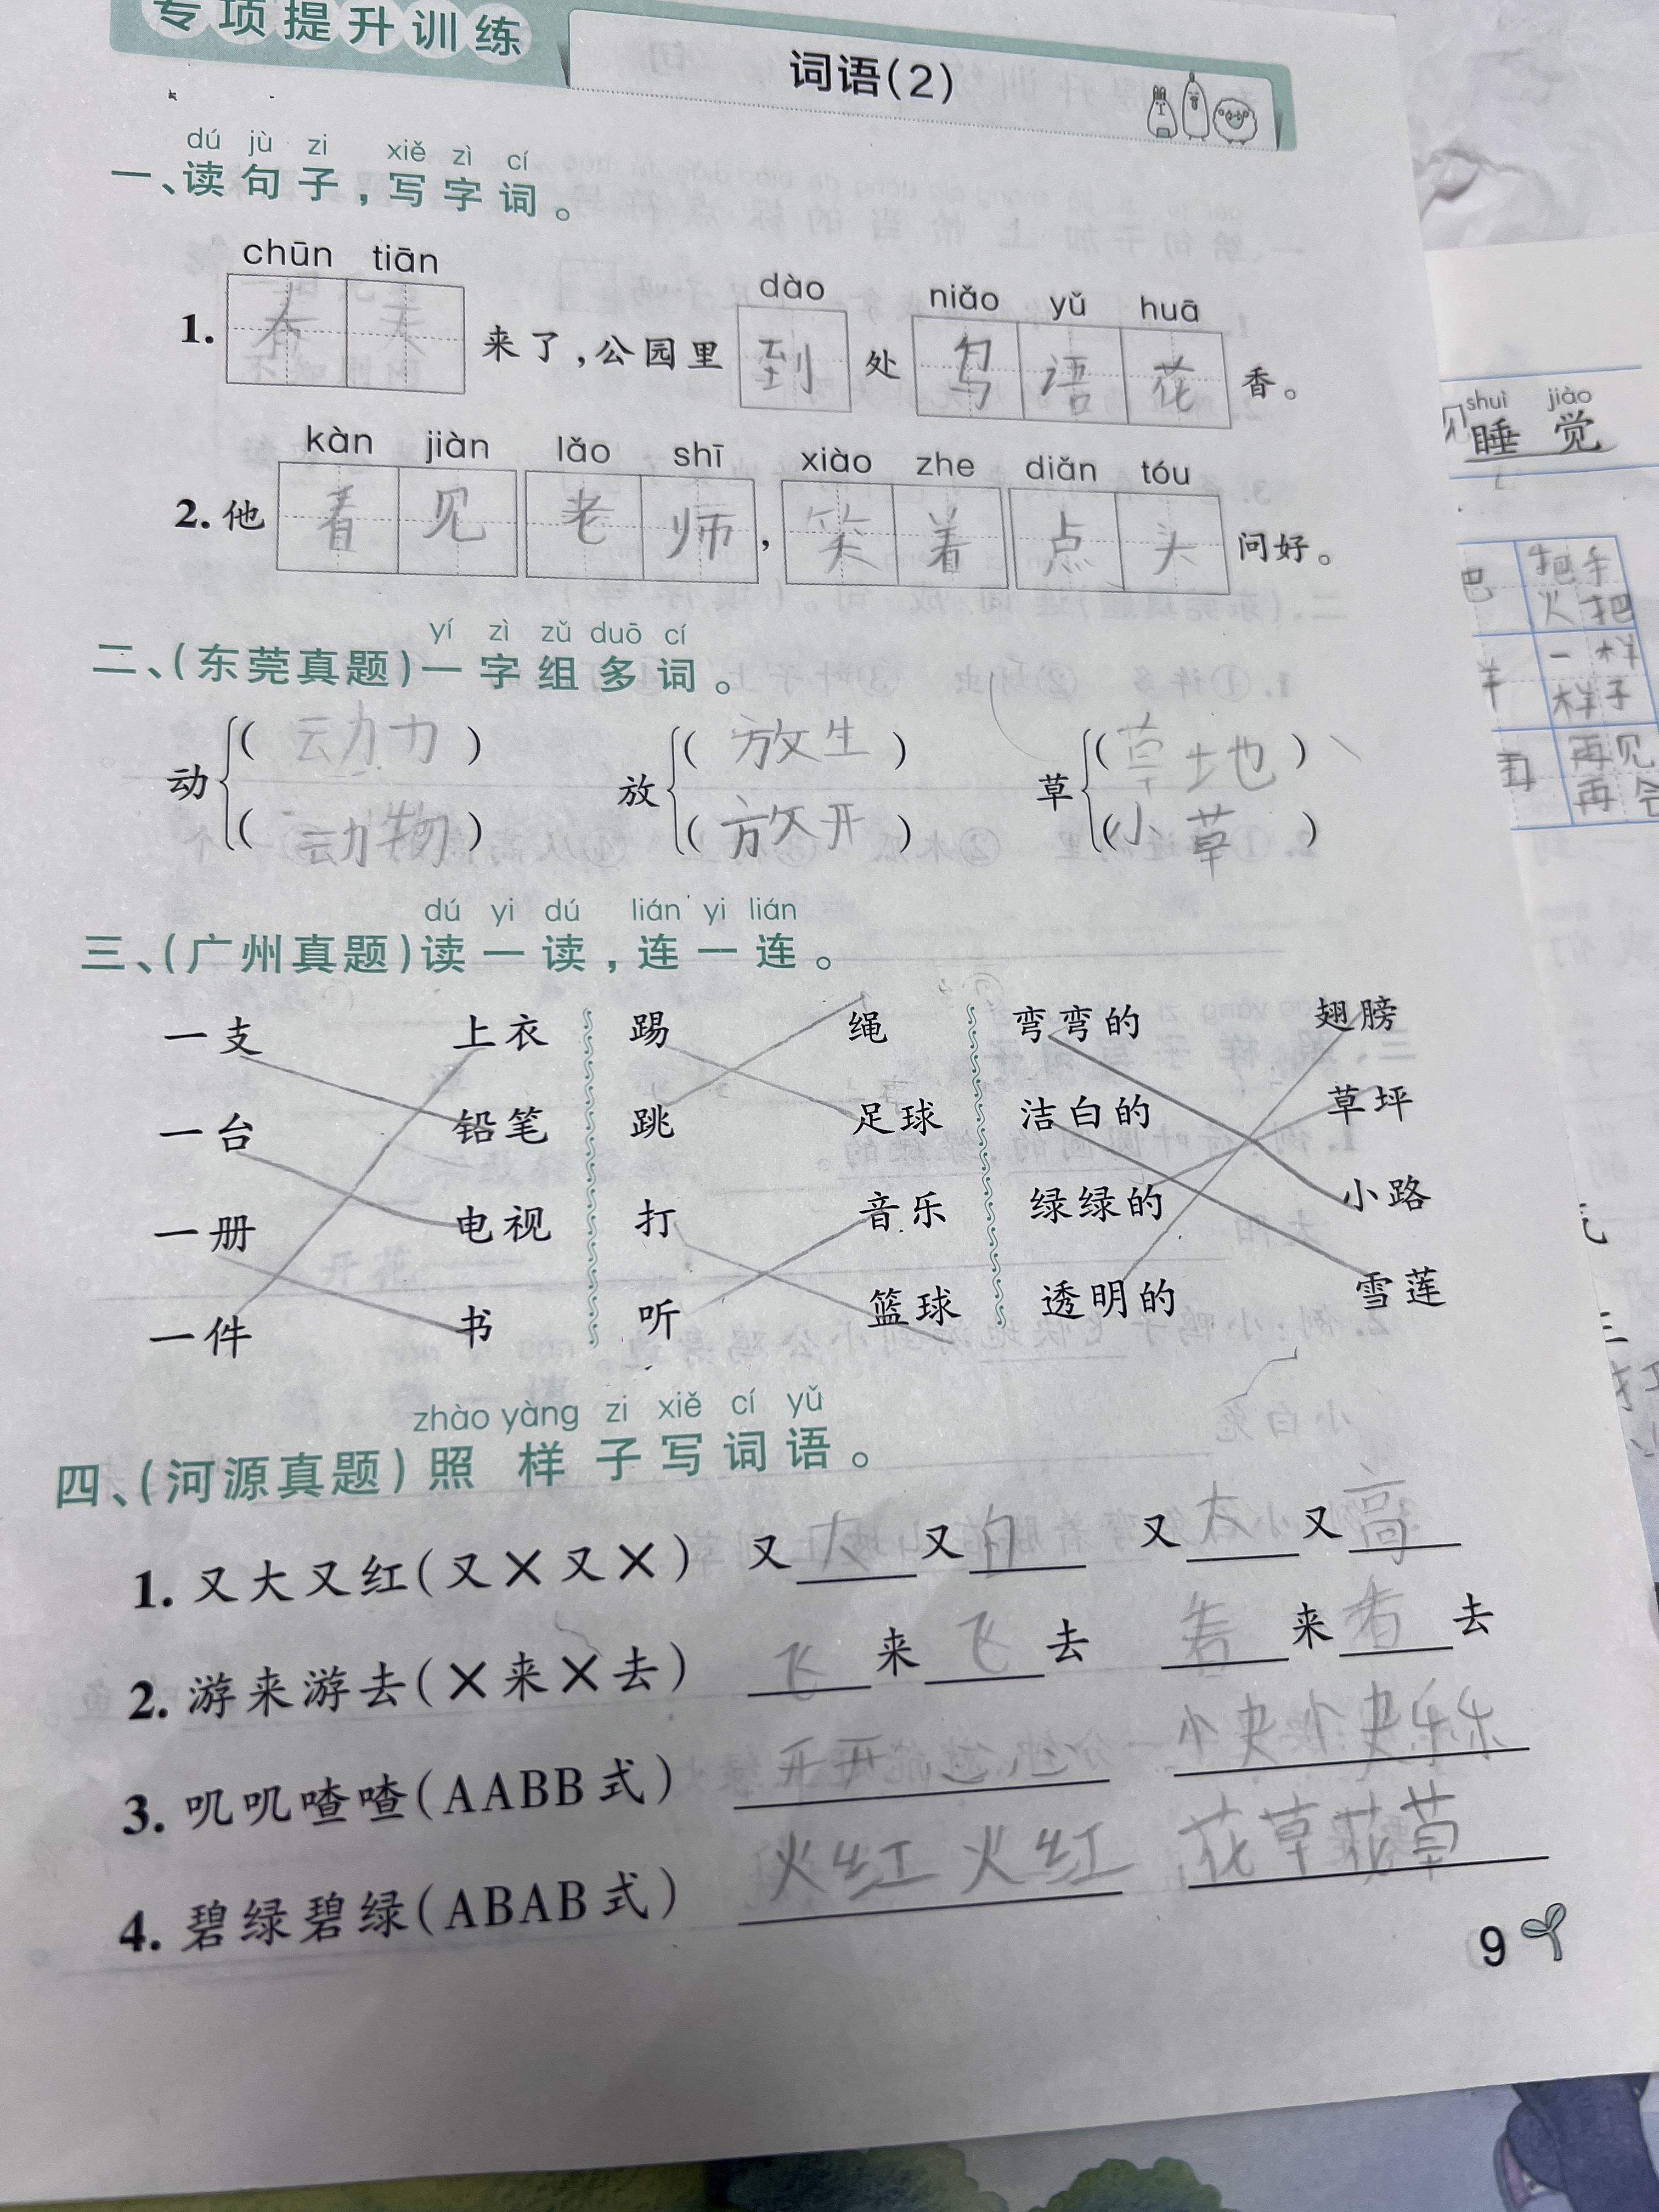 专项提升训练
词语(2)
dú jù zi xiě zì cí
一、读句子,写字词。
chūn tiān dào niǎo yǔ huā
1. 春天来了,公园里到处鸟语花香。
kàn jiàn lǎo shī xiào zhe diǎn tóu
2. 他看见老师,笑着点头问好。
yí zì zǔ duō cí
二、(东莞真题)一字组多词。
动 (动力) 放 (放生) 草 (草地)
(动物) (放开) (小草)
dú yi dú lián yi lián
三、(广州真题)读一读,连一连。
一支 上衣 踢 绳 弯弯的 翅膀
一台 铅笔 跳 足球 洁白的 草坪
一册 电视 打 音乐 绿绿的 小路
一件 书 听 篮球 透明的 雪莲
zhào yàng zi xiě cí yǔ
四、(河源真题)照样子写词语。
1. 又大又红(又×又×) 又大又白 又大又高
2. 游来游去(×来×去) 飞来飞去 看来看去
3. 叽叽喳喳(AABB式) 开开 快快乐乐
4. 碧绿碧绿(ABAB式) 火红火红 花草花草
9
shuì jiào
睡觉
把手
火把
一样
样子
再见
再会